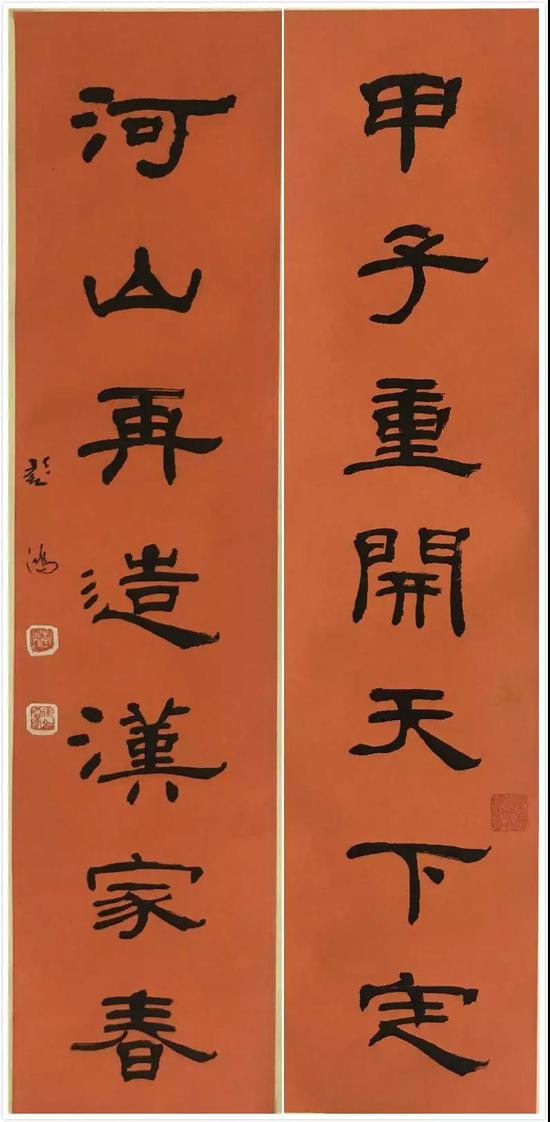 甲子重開天下定
河山再造漢家春
鴻